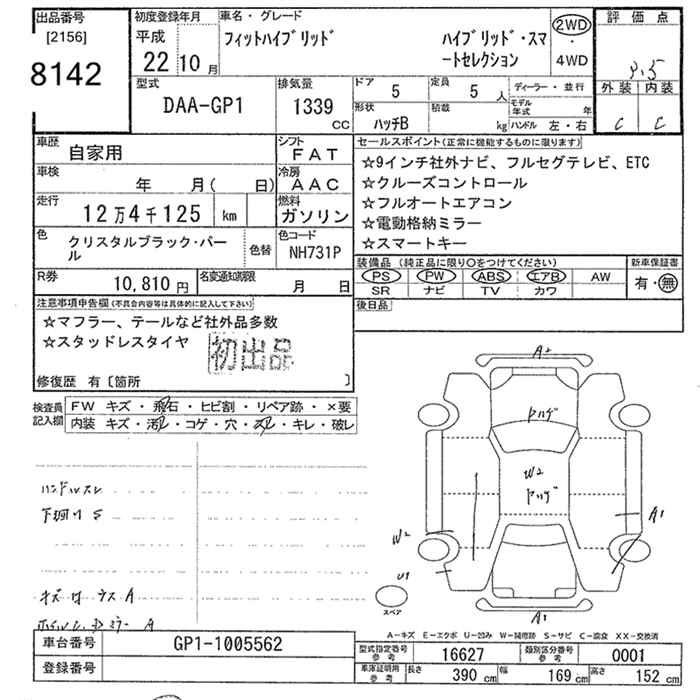 出品番号
[2156]
8142
初度登録年月
平成
22年10月
車名・グレード
フィットハイブリッド
ハイブリッド・スマ
ートセレクション
2WD
・
4WD
評価点
外装 内装
C C
型式
DAA-GP1
排気量
1339
CC
ドア 5
定員 5 人
形状 ハッチB
積載 kg
ディーラー・並行
モデル年式 年
ハンドル 左・右
車歴 自家用
シフト FAT
車検 年 月( 日)
冷房 AAC
走行 12万4千125 km
燃料 ガソリン
色 クリスタルブラック・パー
ル
色替
色コード NH731P
R券 10,810円
名変通知期限 月 日
セールスポイント(正常に機能するものに限ります)
☆9インチ社外ナビ、フルセグテレビ、ETC
☆クルーズコントロール
☆フルオートエアコン
☆電動格納ミラー
☆スマートキー
装備品(純正品に限り〇をつけてください)
PS PW ABS エアB AW
SR ナビ TV カワ
新車保証書
有・無
後日品
注意事項申告欄(不具合内容等は具体的に記入して下さい)
☆マフラー、テールなど社外品多数
☆スタッドレスタイヤ
初出品
修復歴 有〔箇所 〕
検査員
記入欄
FW キズ・飛石・ヒビ割・リペア跡・×要
内装 キズ・汚れ・コゲ・穴・スレ・キレ・破レ
ハンドルスレ
下廻り S
キズ
A
A
A2
W2
W2
A1
U1
スペア
A1
A-キズ E-エクボ U-凹み W-補修跡 S-サビ C-腐食 XX-交換済
車台番号 GP1-1005562
登録番号
型式指定番号
参考
16627
類別区分番号
参考
0001
車庫証明用
参考
長さ 390 cm 幅 169 cm 高さ 152 cm